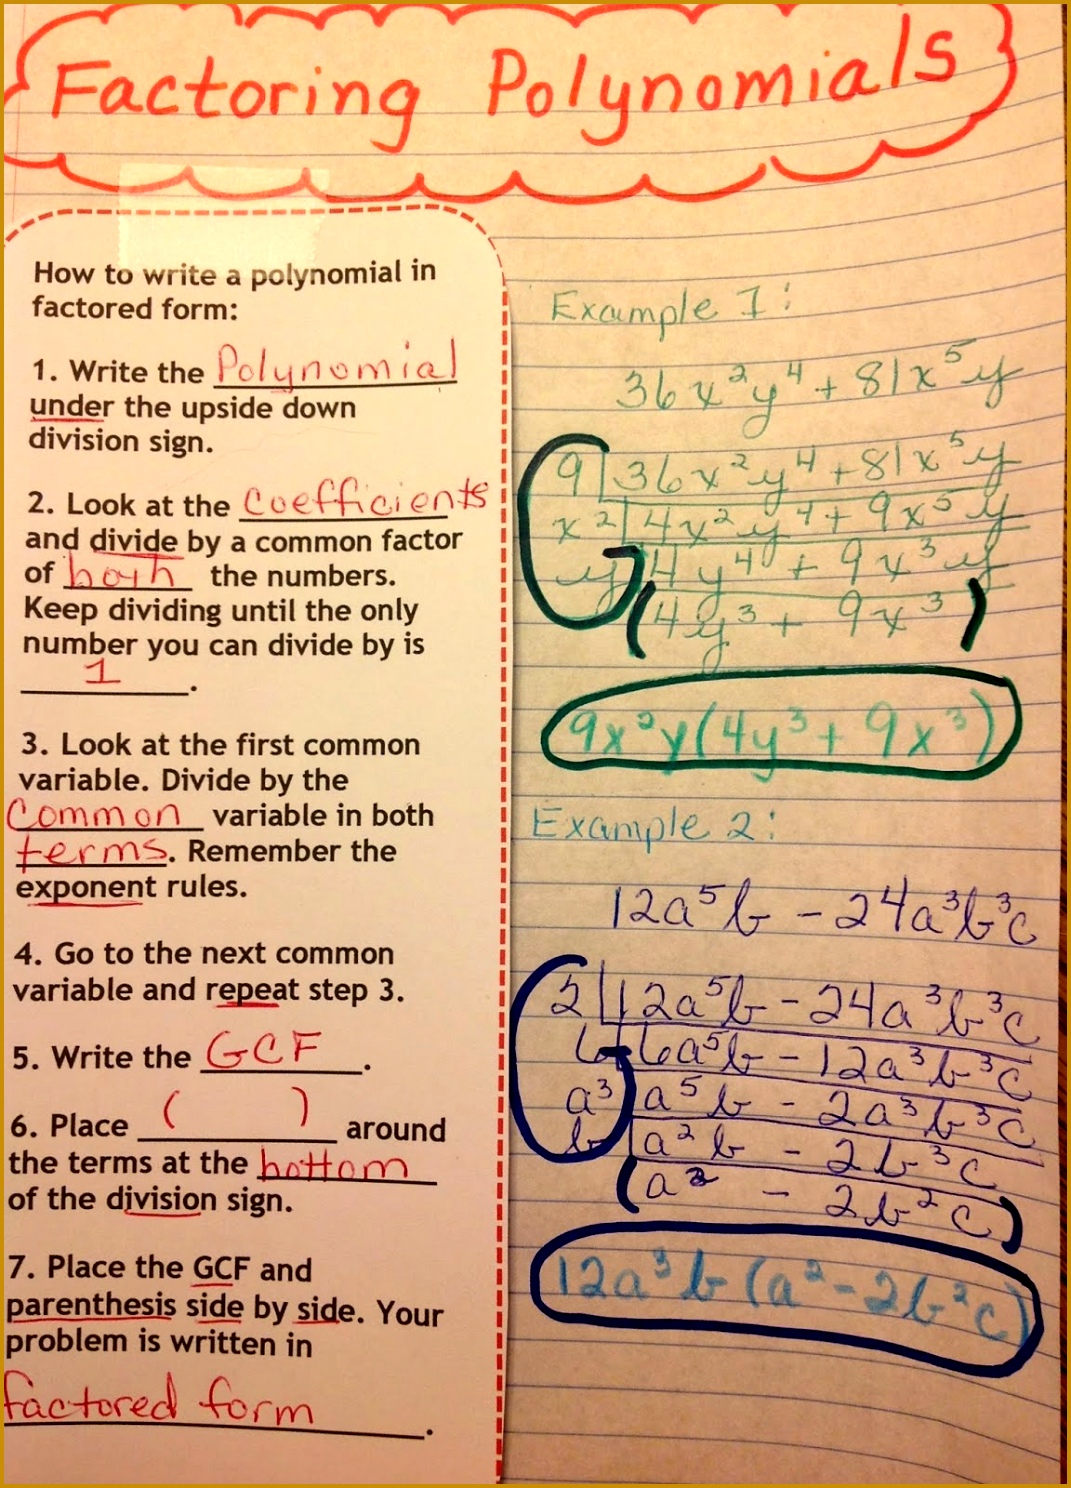 Factoring Polynomials
How to write a polynomial in
factored form:
1. Write the Polynomial
under the upside down
division sign.
2. Look at the coefficients
and divide by a common factor
of both the numbers.
Keep dividing until the only
number you can divide by is
1.
3. Look at the first common
variable. Divide by the
common variable in both
terms. Remember the
exponent rules.
4. Go to the next common
variable and repeat step 3.
5. Write the GCF.
6. Place ( ) around
the terms at the bottom
of the division sign.
7. Place the GCF and
parenthesis side by side. Your
problem is written in
factored form.
Example 1:
36x²y⁴ + 81x⁵y
9 36x²y⁴ + 81x⁵y
x² 4x²y⁴ + 9x⁵y
y 4y⁴ + 9x³y
(4y³ + 9x³)
9x²y(4y³ + 9x³)
Example 2:
12a⁵b - 24a³b³c
2 12a⁵b - 24a³b³c
6 6a⁵b - 12a³b³c
a³ a⁵b - 2a³b³c
b a²b - 2b³c
(a² - 2b²c)
12a³b(a² - 2b²c)